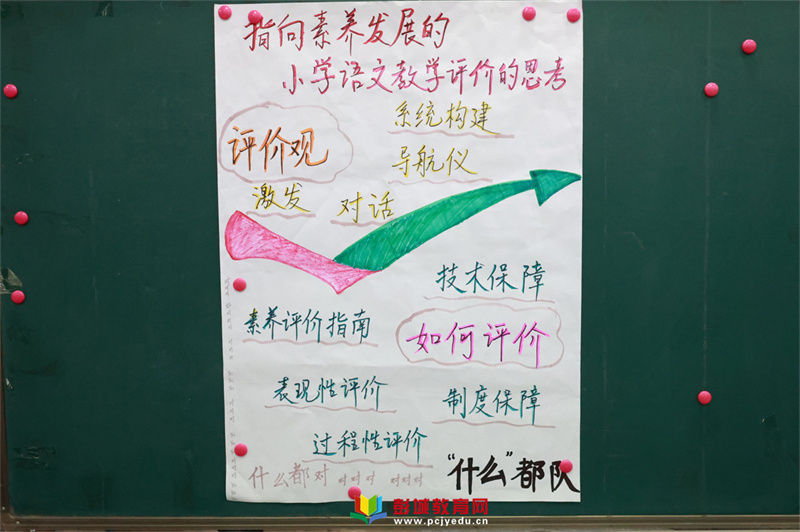 指向素养发展的
小学语文教学评价的思考
系统构建
评价观
导航仪
激发
对话
技术保障
素养评价指南
如何评价
表现性评价
制度保障
过程性评价
什么都对 对对对 对对对
"什么"都队
彭城教育网
www.pcjyedu.cn